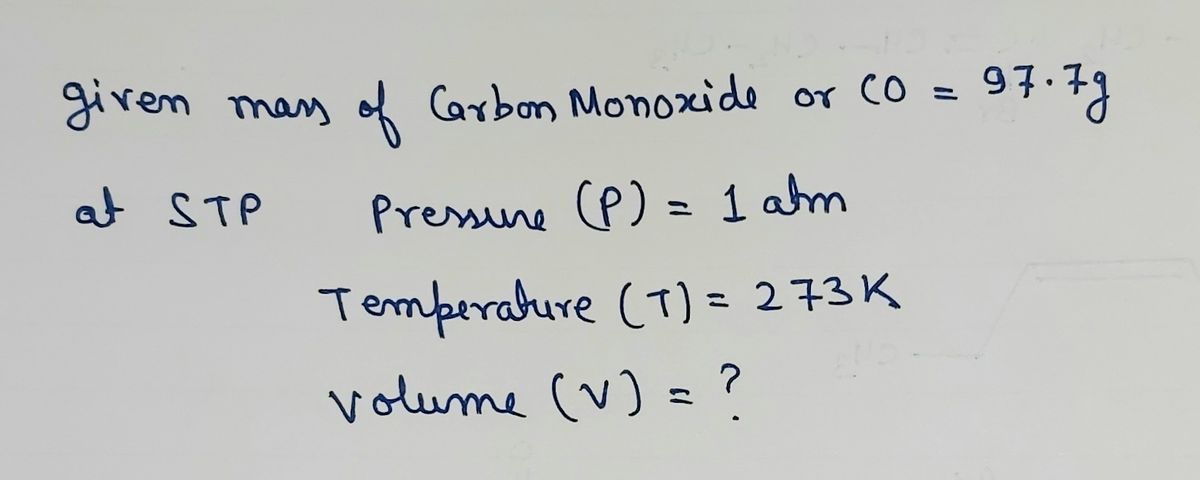 given mass of Carbon Monoxide or CO = 97.7g
at STP Pressure (P) = 1 atm
Temperature (T) = 273K
volume (V) = ?